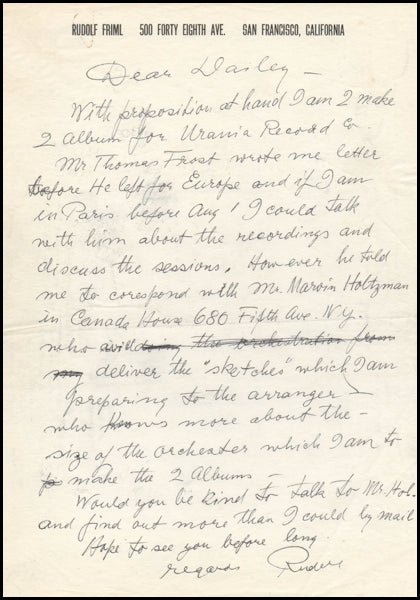 RUDOLF FRIML 500 FORTY EIGHTH AVE. SAN FRANCISCO, CALIFORNIA
Dear Dailey —
With proposition at hand I am 2 make
2 Album for Urania Record Co.
Mr Thomas Frost wrote me letter
before He left for Europe and if I am
in Paris before Aug 1 I could talk
with him about the recordings and
discuss the sessions. However he told
me to corespond with Mr. Marvin Holtzman
in Canada House 680 Fifth Ave. N.Y.
who will doing the orchestration from
my deliver the "sketches" which I am
preparing to the arranger —
who knows more about the —
size of the orchester which I am to
make the 2 Albums —
Would you be kind to talk to Mr. Hol-
and find out more than I could by mail
Hope to see you before long.
regards Rudolf